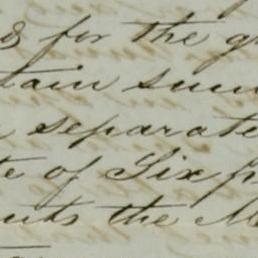 & for the
tain sum
separate
te of Six p
nts the